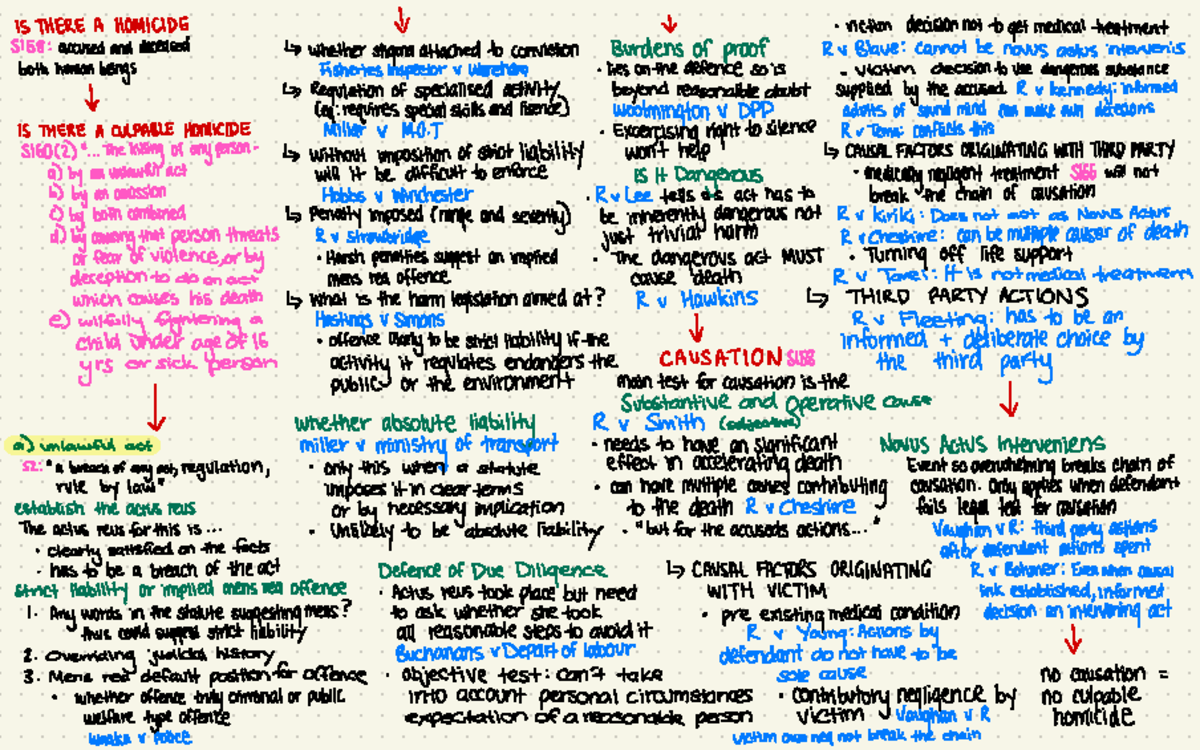 IS THERE A HOMICIDE
S158: accused and deceased
both human beings
IS THERE A CULPABLE HOMICIDE
S160(2) "... The killing of any person:
a) by an unlawful act
b) by an omission
c) by both combined
d) by causing that person threats
or fear of violence, or by
deception to do an act
which causes his death
e) wilfully frightening a
child under age of 16
yrs or sick person
a) unlawful act
S2: "a breach of any act, regulation,
rule by law"
establish the actus reus
The actus reus for this is...
• clearly satisfied on the facts
• has to be a breach of the act
Strict liability or implied mens rea offence
1. Any words in the statute suggesting mens?
thus could suggest strict liability
2. Overriding judicial history
3. Mens rea default position for offence
• whether offence truly criminal or public
welfare type offence
Waaka v Police
↳ whether stigma attached to conviction
Fisheries Inspector v Wareham
↳ Regulation of specialised activity
(eg: requires special skills and licence)
Miller v M.O.T
↳ without imposition of strict liability
will it be difficult to enforce
Hobbs v Winchester
↳ Penalty imposed (range and severity)
R v Strawbridge
• Harsh penalties suggest an implied
mens rea offence.
↳ What is the harm legislation aimed at?
Hastings v Simons
• offence likely to be strict liability if the
activity it regulates endangers the
public or the environment
whether absolute liability
miller v ministry of transport
• only this when a statute
imposes it in clear terms
or by necessary implication
• Unlikely to be absolute liability
Defence of Due Diligence
• Actus reus took place but need
to ask whether she took
all reasonable steps to avoid it
Buchanans v Depart of labour
• objective test: can't take
into account personal circumstances
expectation of a reasonable person
Burdens of proof
• lies on the defence so is
beyond reasonable doubt
Woolmington v DPP
• Excercising right to silence
won't help
Is it Dangerous
R v Lee tells us act has to
be inherently dangerous not
just trivial harm
• The dangerous act MUST
cause death
R v Hawkins
CAUSATION S158
main test for causation is the
Substantive and Operative cause
R v Smith (objective)
• needs to have an significant
effect in accelerating death
• can have multiple causes contributing
to the death R v Cheshire
• "but for the accuseds actions..."
↳ CAUSAL FACTORS ORIGINATING
WITH VICTIM
• pre existing medical condition
R v Young: Actions by
defendant do not have to be
sole cause
• contributory negligence by
victim Vaughan v R
victim own neg not break the chain
• victim decision not to get medical treatment
R v Blaue: cannot be novus actus intervenis
• victim decision to use dangerous substance
supplied by the accused. R v kennedy: informed
adults of sound mind can make own decisions
R v Tomi: conflicts this
↳ CAUSAL FACTORS ORIGINATING WITH THIRD PARTY
• medically negligent treatment S166 will not
break the chain of causation
R v Kirikiri: Does not act as Novus Actus
R v Cheshire: can be multiple causes of death
• Turning off life support
R v Tame: It is not medical treatment
↳ THIRD PARTY ACTIONS
R v Fleeting: has to be an
informed + deliberate choice by
the third party
Novus Actus Interveniens
Event so overwhelming breaks chain of
causation. Only applies when defendant
fails legal test for causation
Vaughan v R: third party actions
after defendant actions spent
R v Bohner: Even when causal
link established, informed
decision an intervening act
no causation =
no culpable
homicide